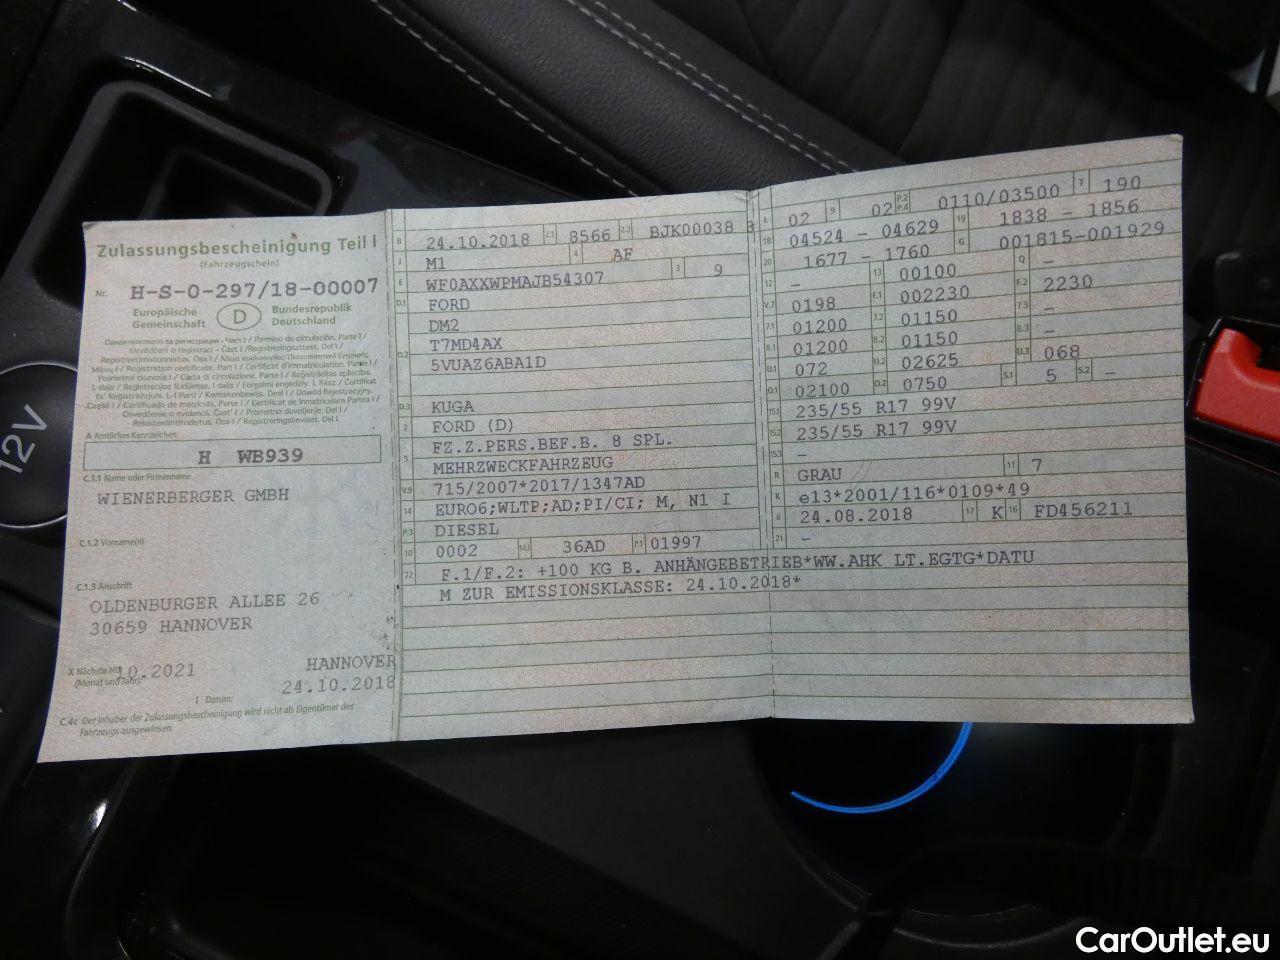 Zulassungsbescheinigung Teil I
(Fahrzeugschein)
Nr. H-S-0-297/18-00007
Europäische Gemeinschaft
D
Bundesrepublik Deutschland
A Amtliches Kennzeichen
H WB939
C.1.1 Name oder Firmenname
WIENERBERGER GMBH
C.1.2 Vorname(n)
C.1.3 Anschrift
OLDENBURGER ALLEE 26
30659 HANNOVER
X Nächste HU
(Monat und Jahr):
10.2021
HANNOVER
24.10.2018
I Datum:
C.4c Der Inhaber der Zulassungsbescheinigung wird nicht als Eigentümer des
Fahrzeugs ausgewiesen.
B 24.10.2018 2.1 8566 2.2 BJK00038
J M1 4 AF
E WF0AXXWPMAJB54307 3 9
D.1 FORD
DM2
D.2 T7MD4AX
5VUAZ6ABA1D
D.3 KUGA
2 FORD (D)
5 FZ.Z.PERS.BEF.B. 8 SPL.
MEHRZWECKFAHRZEUG
V.9 715/2007*2017/1347AD
14 EURO6;WLTP;AD;PI/CI; M, N1 I
P.3 DIESEL
10 0002 14.1 36AD P.1 01997
22 F.1/F.2: +100 KG B. ANHÄNGEBETRIEB*WW.AHK LT.EGTG*DATU
M ZUR EMISSIONSKLASSE: 24.10.2018*
L 02 9 02 P.2 P.4 0110/03500 T 190
18 04524 - 04629 19 1838 - 1856
20 1677 - 1760 G 001815-001929
12 - 13 00100 Q -
V.7 0198 F.1 002230 F.2 2230
7.1 01200 7.2 01150 7.3 -
8.1 01200 8.2 01150 8.3 -
U.1 072 U.2 02625 U.3 068
O.1 02100 O.2 0750 S.1 5 S.2 -
15.1 235/55 R17 99V
15.2 235/55 R17 99V
15.3 -
R GRAU 11 7
K e13*2001/116*0109*49
6 24.08.2018 17 K 16 FD456211
21 -
12V
CarOutlet.eu